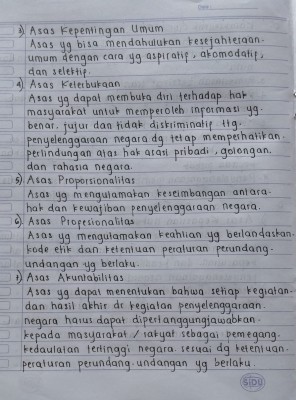 3) Asas Kepentingan Umum
Asas yg bisa mendahulukan kesejahteraan.
umum dengan cara yg aspiratif, akomodatif,
dan selektif.
4) Asas Keterbukaan
Asas yg dapat membuka diri terhadap hak
masyarakat untuk memperoleh informasi yg.
benar, jujur dan tidak diskriminatif ttg.
penyelenggaraan negara dg tetap memperhatikan.
perlindungan atas hak asasi pribadi, golongan.
dan rahasia negara.
5) Asas Proporsionalitas
Asas yg mengutamakan keseimbangan antara.
hak dan kewajiban penyelenggaraan negara.
6) Asas Profesionalitas
Asas yg mengutamakan keahlian yg berlandaskan.
kode etik dan ketentuan peraturan perundang.
undangan yg berlaku.
7) Asas Akuntabilitas
Asas yg dapat menentukan bahwa setiap kegiatan.
dan hasil akhir dr kegiatan penyelenggaraan.
negara harus dapat dipertanggungjawabkan.
kepada masyarakat / rakyat sebagai pemegang.
kedaulatan tertinggi negara. sesuai dg ketentuan.
peraturan perundang. undangan yg berlaku.
SIDU